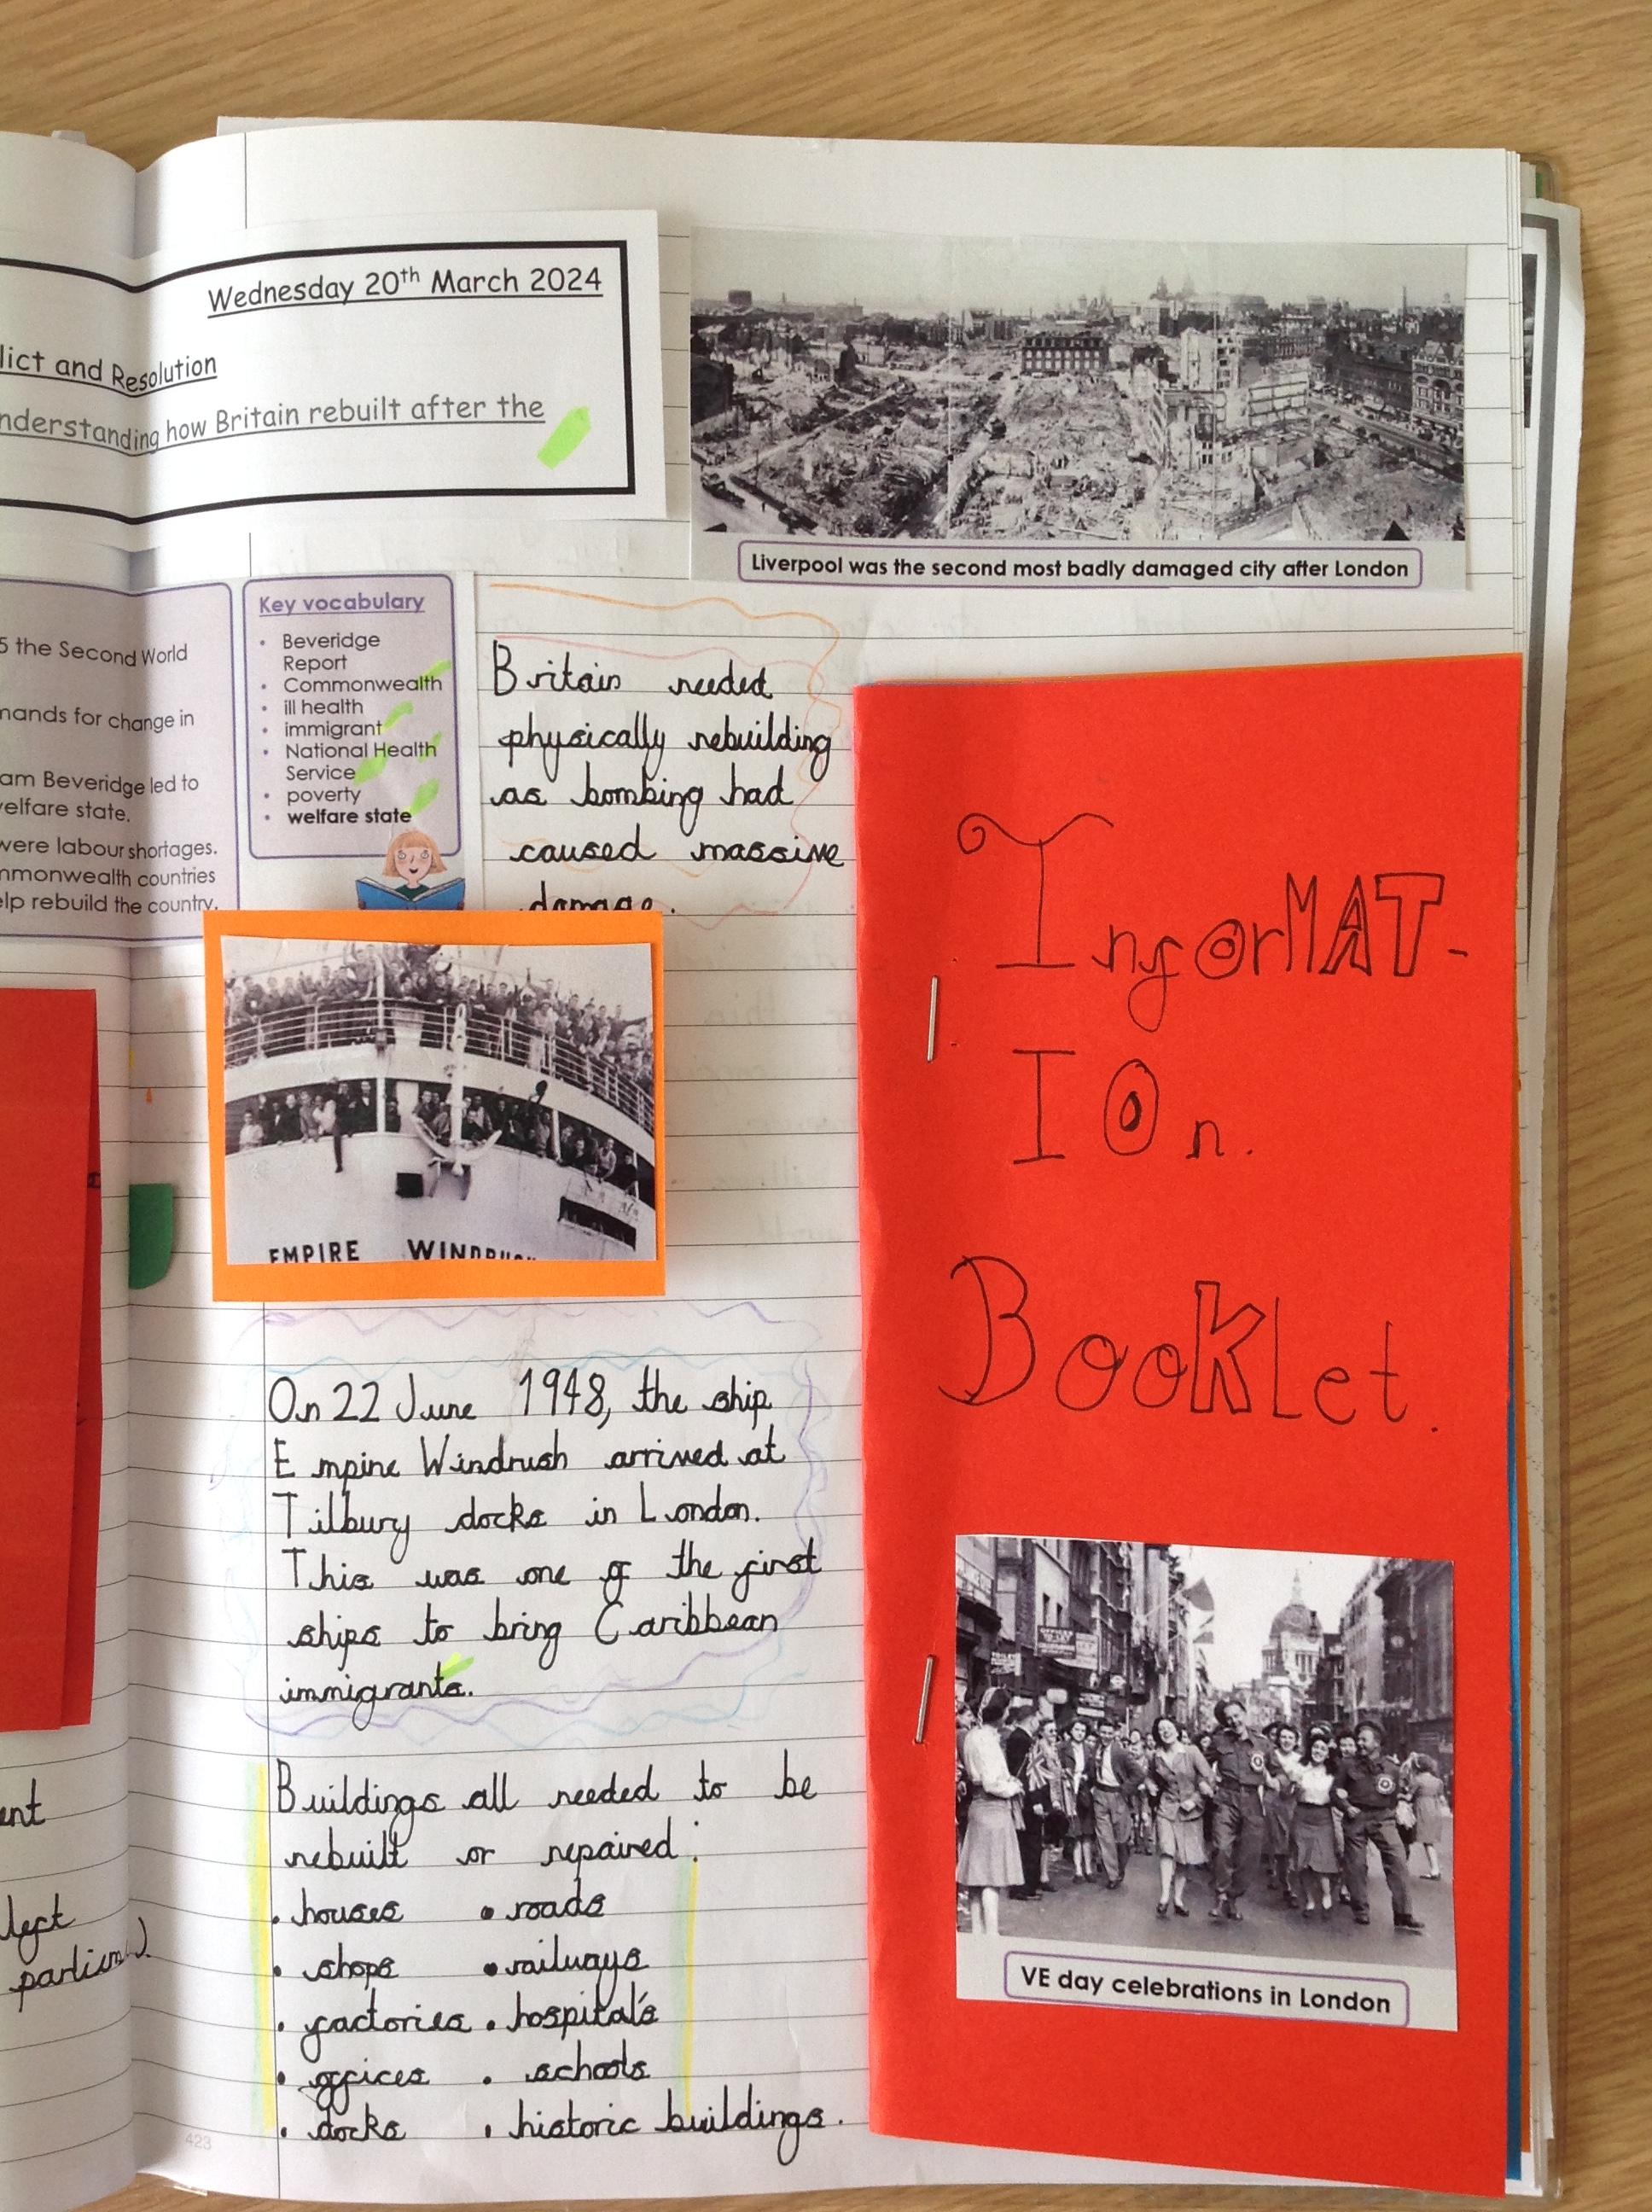 Wednesday 20th March 2024
lict and Resolution
nderstanding how Britain rebuilt after the
Liverpool was the second most badly damaged city after London
5 the Second World
mands for change in
am Beveridge led to
velfare state.
were labour shortages.
mmonwealth countries
elp rebuild the country.
Key vocabulary
• Beveridge
Report
• Commonwealth
• ill health
• immigrant
• National Health
Service
• poverty
• welfare state
Britain needed
physically rebuilding
as bombing had
caused massive
damage.
EMPIRE WINDRUSH
On 22 June 1948, the ship
Empire Windrush arrived at
Tilbury docks in London.
This was one of the first
ships to bring Caribbean
immigrants.
Buildings all needed to be
rebuilt or repaired:
• houses • roads
• shops • railways
• factories • hospital's
• offices • schools
• docks • historic buildings.
423
ent
left
InforMAT-
IOn.
BooKlet.
VE day celebrations in London